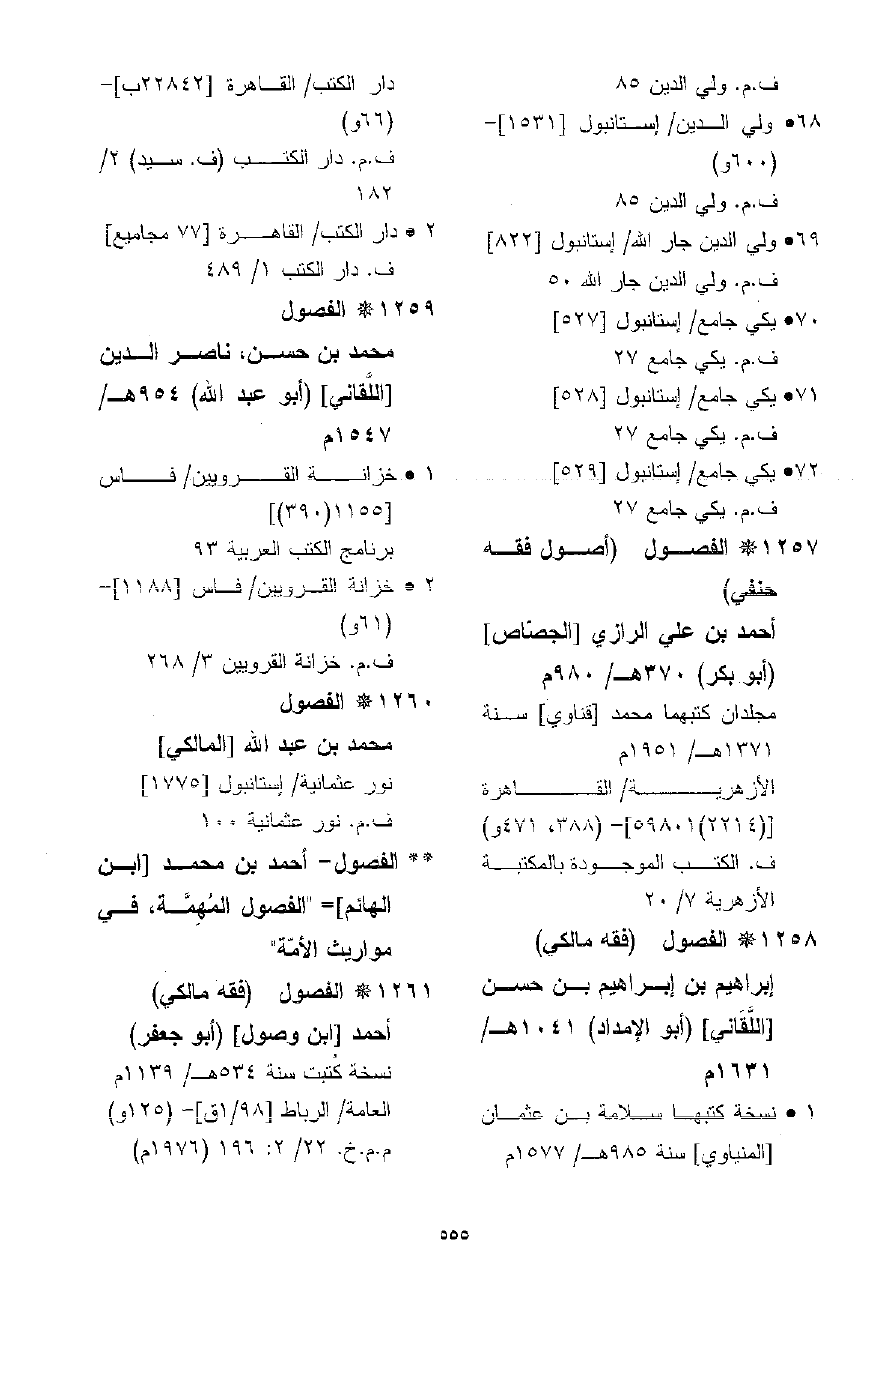 ف.م. ولي الدين ٨٥
٦٨• ولي الدين/ إستانبول [١٥٣١]-
(٦٠٠و)
ف.م. ولي الدين ٨٥
٦٩• ولي الدين جار الله/ إستانبول [٨٢٢]
ف.م. ولي الدين جار الله ٥٠
٧٠• يكي جامع/ إستانبول [٥٢٧]
ف.م. يكي جامع ٢٧
٧١• يكي جامع/ إستانبول [٥٢٨]
ف.م. يكي جامع ٢٧
٧٢• يكي جامع/ إستانبول [٥٢٩]
ف.م. يكي جامع ٢٧
١٢٥٧* الفصول (أصول فقه
حنفي)
أحمد بن علي الرازي [الجصّاص]
(أبو بكر) ٣٧٠هـ/ ٩٨٠م
مجلدان كتبهما محمد [قناوي] سنة
١٣٧١هـ/ ١٩٥١م
الأزهرية/ القاهرة
[(٢٢١٤)٥٩٨٠١]- (٣٨٨، ٤٧١و)
ف. الكتب الموجودة بالمكتبة
الأزهرية ٧/ ٢٠
١٢٥٨* الفصول (فقه مالكي)
إبراهيم بن إبراهيم بن حسن
[اللَّقَاني] (أبو الإمداد) ١٠٤١هـ/
١٦٣١م
١ • نسخة كتبها سلامة بن عثمان
[المنياوي] سنة ٩٨٥هـ/ ١٥٧٧م
دار الكتب/ القاهرة [٢٢٨٤٢ب]-
(٦٦و)
ف.م. دار الكتب (ف. سيد) ٢/
١٨٢
٢ • دار الكتب/ القاهرة [٧٧ مجاميع]
ف. دار الكتب ١/ ٤٨٩
١٢٥٩* الفصول
محمد بن حسن، ناصر الدين
[اللَّقاني] (أبو عبد الله) ٩٥٤هـ/
١٥٤٧م
١ • خزانة القرويين/ فاس
[١١٥٥(٣٩٠)]
برنامج الكتب العربية ٩٣
٢ • خزانة القرويين/ فاس [١١٨٨]-
(٦١و)
ف.م. خزانة القرويين ٣/ ٢٦٨
١٢٦٠* الفصول
محمد بن عبد الله [المالكي]
نور عثمانية/ إستانبول [١٧٧٥]
ف.م. نور عثمانية ١٠٠
** الفصول- أحمد بن محمد [ابن
الهائم]= "الفصول المُهِمَّة، في
مواريث الأمّة"
١٢٦١* الفصول (فقه مالكي)
أحمد [ابن وصول] (أبو جعفر)
نسخة كُتبت سنة ٥٣٤هـ/ ١١٣٩م
العامة/ الرباط [١/٩٨ق]- (١٢٥و)
م.م.خ. ٢٢/ ٢: ١٩٦ (١٩٧٦م)
٥٥٥